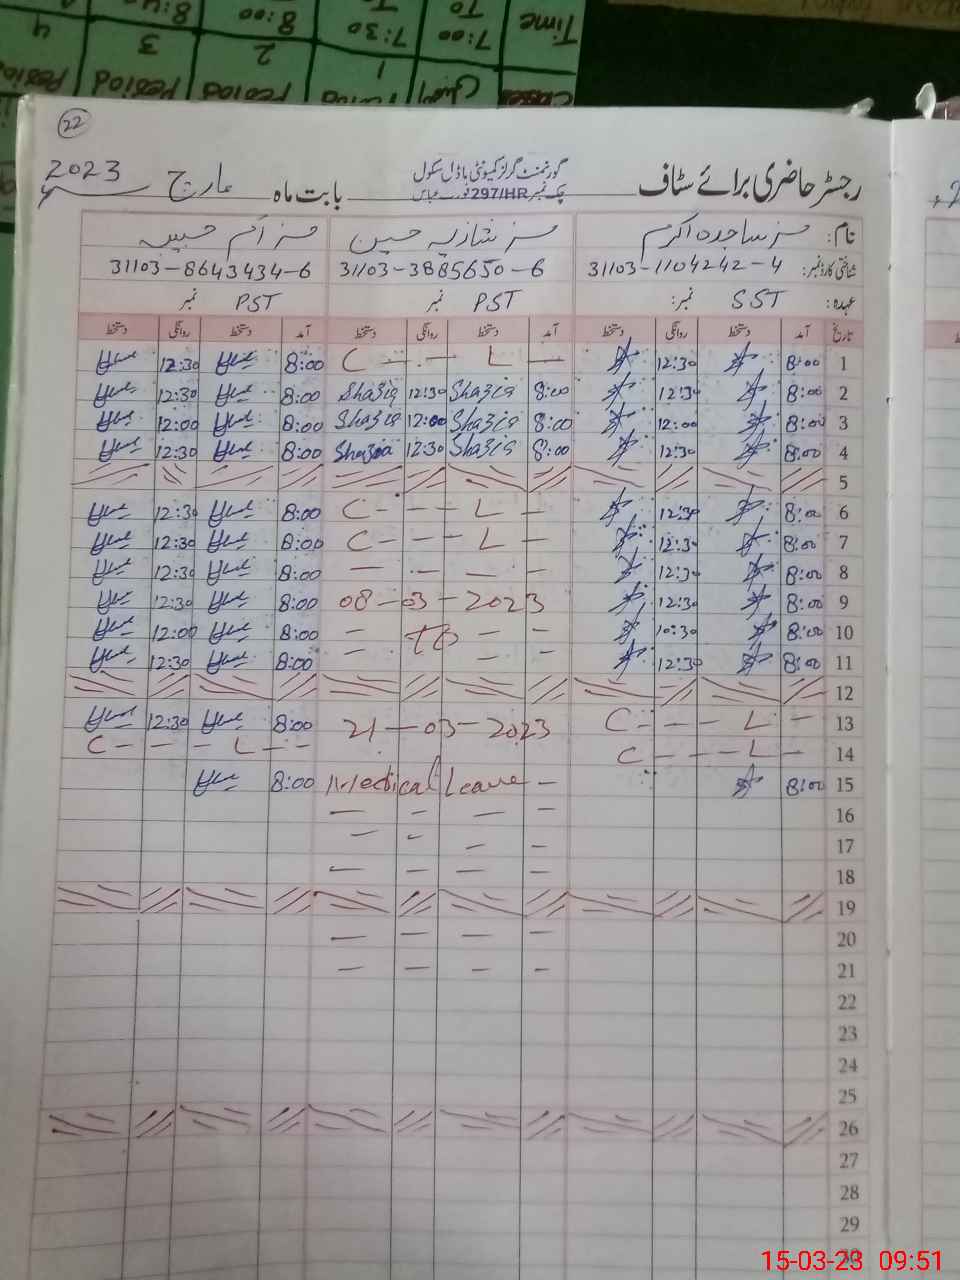 Time
7:00 To
7:30
8:00
Classes
1
2
Period
3
Period
4
Period
22
رجسٹر حاضری برائے سٹاف گورنمنٹ گرلز کمیونٹی ماڈل سکول بابت ماہ مارچ 2023ء
چک نمبر 297/HR فورٹ عباس
نام: مسز ساجدہ اکرم مسز شازیہ حسین مسز
شناختی کارڈ نمبر: 31103-1104242-4 31103-3885650-6 31103-8643434-6
عہدہ: SST نمبر: PST نمبر PST نمبر
تاریخ آمد دستخط روانگی دستخط آمد دستخط روانگی دستخط آمد دستخط روانگی دستخط
1 8:00 12:30 C - - L - 8:00 12:30
2 8:00 12:30 8:00 Shazia 12:30 Shazia 8:00 12:30
3 8:00 12:00 8:00 Shazia 12:00 Shazia 8:00 12:00
4 8:00 12:30 8:00 Shazia 12:30 Shazia 8:00 12:30
5
6 8:00 12:30 C - - - L - 8:00 12:30
7 8:00 12:30 C - - - L - 8:00 12:30
8 8:00 12:30 - - - - 8:00 12:30
9 8:00 12:30 08-03-2023 8:00 12:30
10 8:00 10:30 - to - - 8:00 12:00
11 8:00 12:30 - - - 8:00 12:30
12
13 C - - - L - 21-03-2023 8:00 12:30
14 C - - - L - C - - - L - -
15 8:00 Medical Leave - 8:00
16 - - - -
17 - - - -
18 - - - -
19
20 - - - -
21 - - - -
22
23
24
25
26
27
28
29
30
15-03-23 09:51